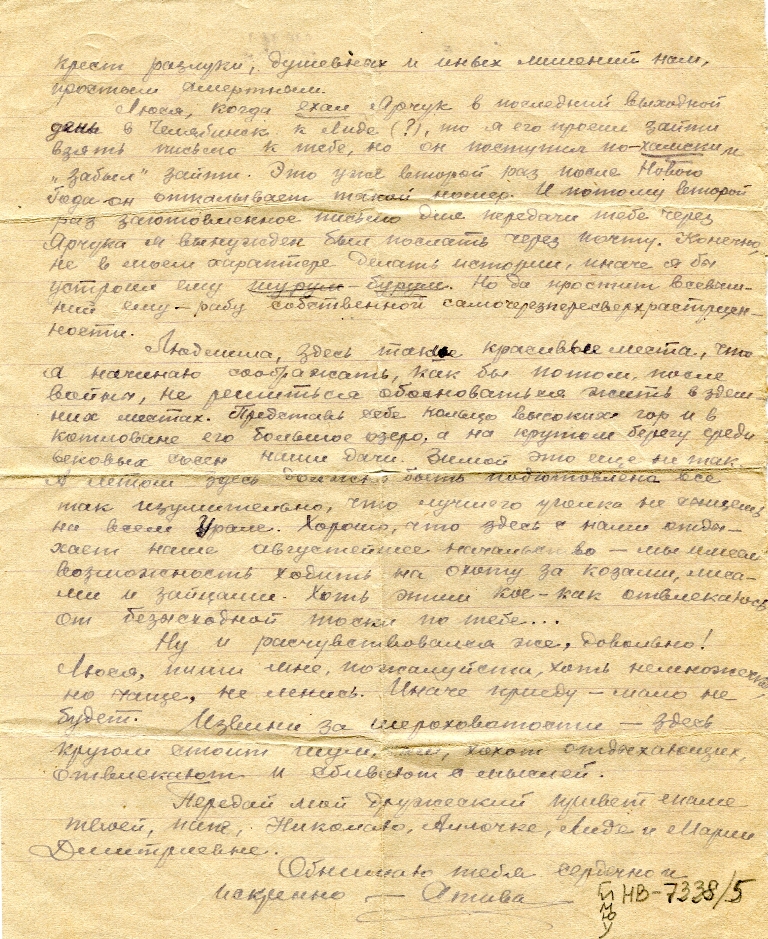 крест разлуки, душевных и иных лишений нам,
простым смертным.
Люся, когда ехал Ярчук в последний выходной
день в Челябинск к Лиде (?), то я его просил зайти
взять письмо к тебе, но он поступил по-хамски и
„забыл" зайти. Это уже второй раз после Нового
Года он откалывает такой номер. И потому второй
раз заготовленное письмо для передачи тебе через
Ярчука я вынужден был послать через почту. Конечно,
не в моем характере делать истории, иначе я бы
устроил ему шурум-бурум. Но да простит всевыш-
ний ему - рабу собственной самочерезпересверхрастущен-
ности.
Людмила, здесь такие красивые места, что
я начинаю соображать, как бы потом, после
войны, не решиться обосноваться жить в здеш
них местах. Представь себе кольцо высоких гор и в
котловане его большое озеро, а на крутом берегу среди
вековых сосен наши дачи. Зимой это еще не так.
А летом здесь должно быть подготовлена все
так изумительно, что лучшего уголка не сыщешь
на всем Урале. Хорошо, что здесь с нами отды-
хает наше августейшее начальство — мы имеем
возможность ходить на охоту за козами, лиса-
ми и зайцами. Хоть этим кое-как отвлекаюсь
от безысходной тоски по тебе...
Ну и расчувствовался же, довольно!
Люся, пиши мне, пожалуйста, хоть немножечко,
но чаще, не ленись. Иначе приеду — мало не
будет. Извини за шероховатости — здесь
кругом стоит шум, хохот отдыхающих,
отвлекают и сбивают с мыслей.
Передай мой дружеский привет маме
твоей, папе, Николаю, Лилочке, Лиде и Марии
Дмитриевне.
Обнимаю тебя сердечно и
искренно —
НВ-7338/5